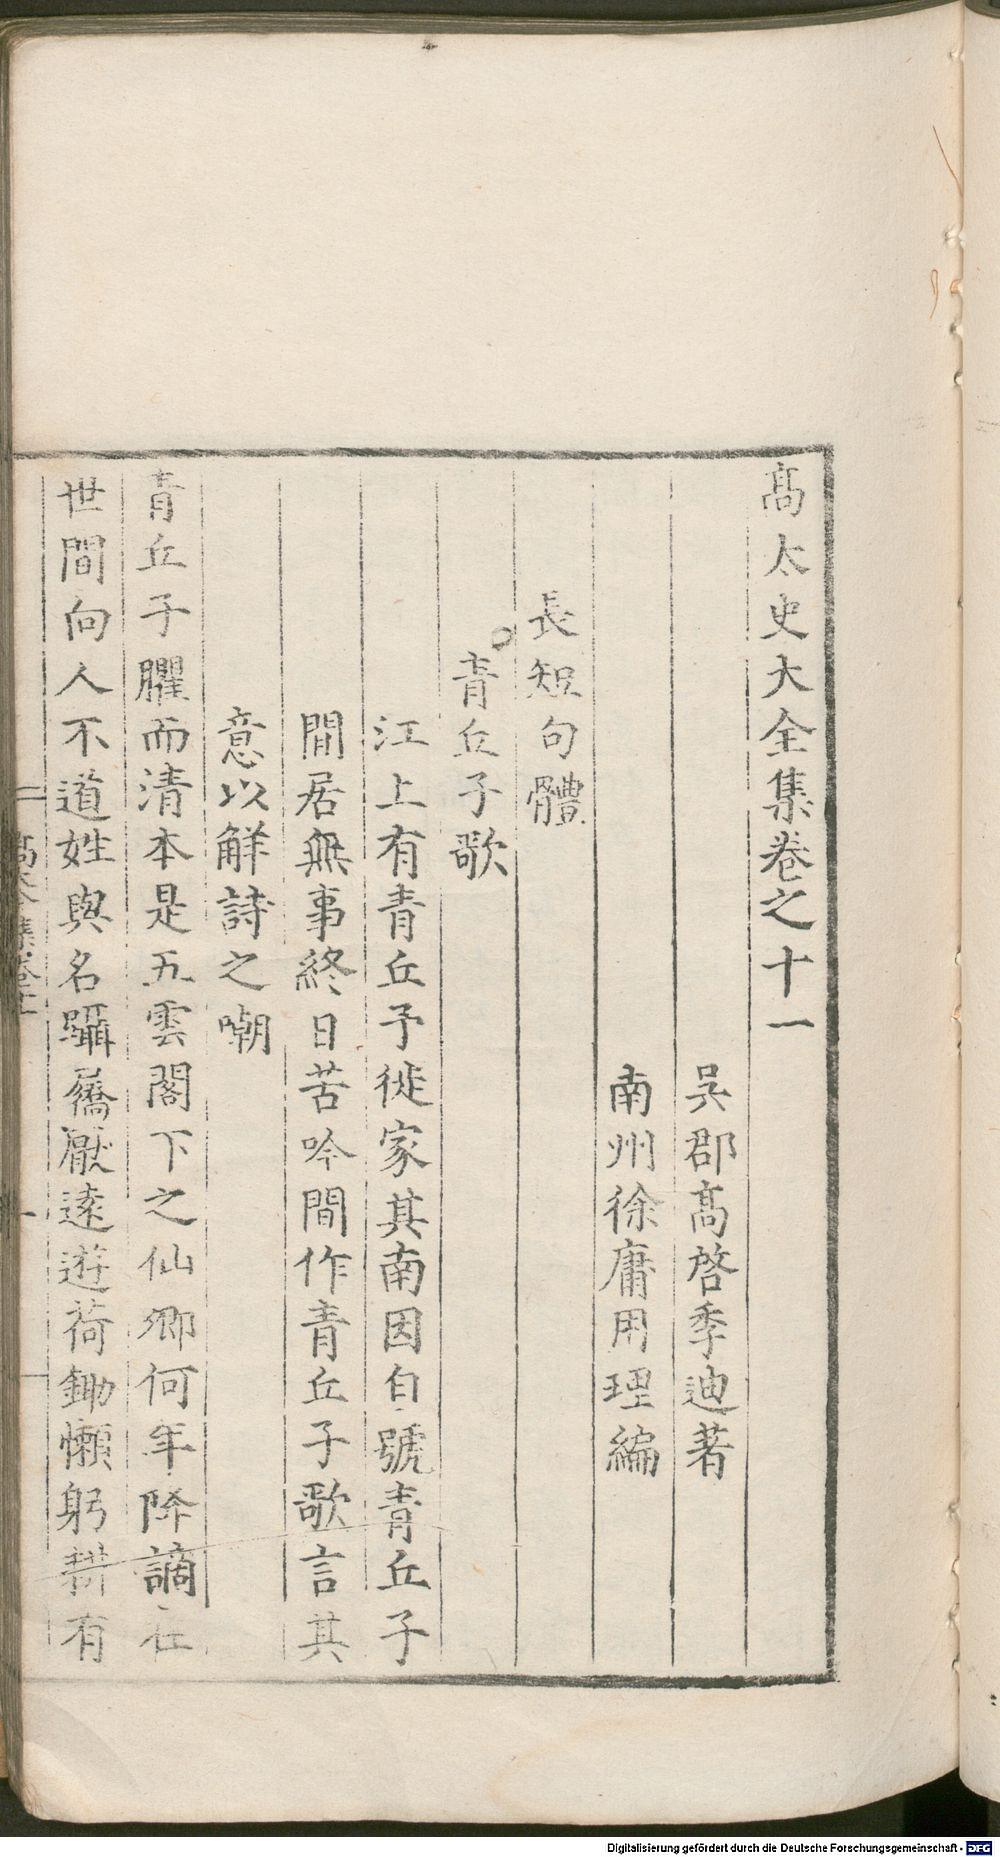 髙太史大全集卷之十一
吳郡髙啓季迪著
南州徐庸用理編
長短句體
青丘子歌
江上有青丘予徙家其南因自號青丘子
間居無事終日苦吟間作青丘子歌言其
意以解詩之嘲
青丘子臞而清本是五雲閣下之仙卿何年降謫在
世間向人不道姓與名躡屩厭遠遊荷鋤懶躬耕有
Digitalisierung gefördert durch die Deutsche Forschungsgemeinschaft - DFG